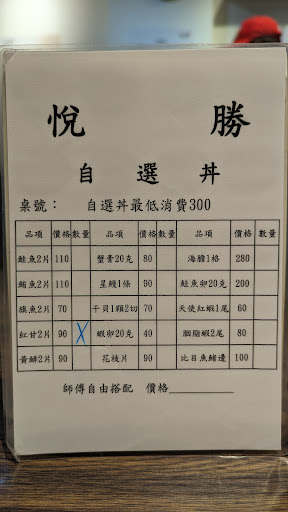 悅 勝
自 選 丼
桌號： 自選丼最低消費300
品項 價格 數量 品項 價格 數量 品項 價格 數量
鮭魚2片 110 蟹膏20克 80 海膽1格 280
鮪魚2片 110 星鰻1條 90 鮭魚卵20克 200
旗魚2片 70 干貝1顆2切 70 天使紅蝦1尾 60
紅甘2片 90 X 蝦卵20克 40 胭脂蝦2尾 80
黃鰤2片 90 花枝片 90 比目魚鰭邊 100
師傅自由搭配 價格